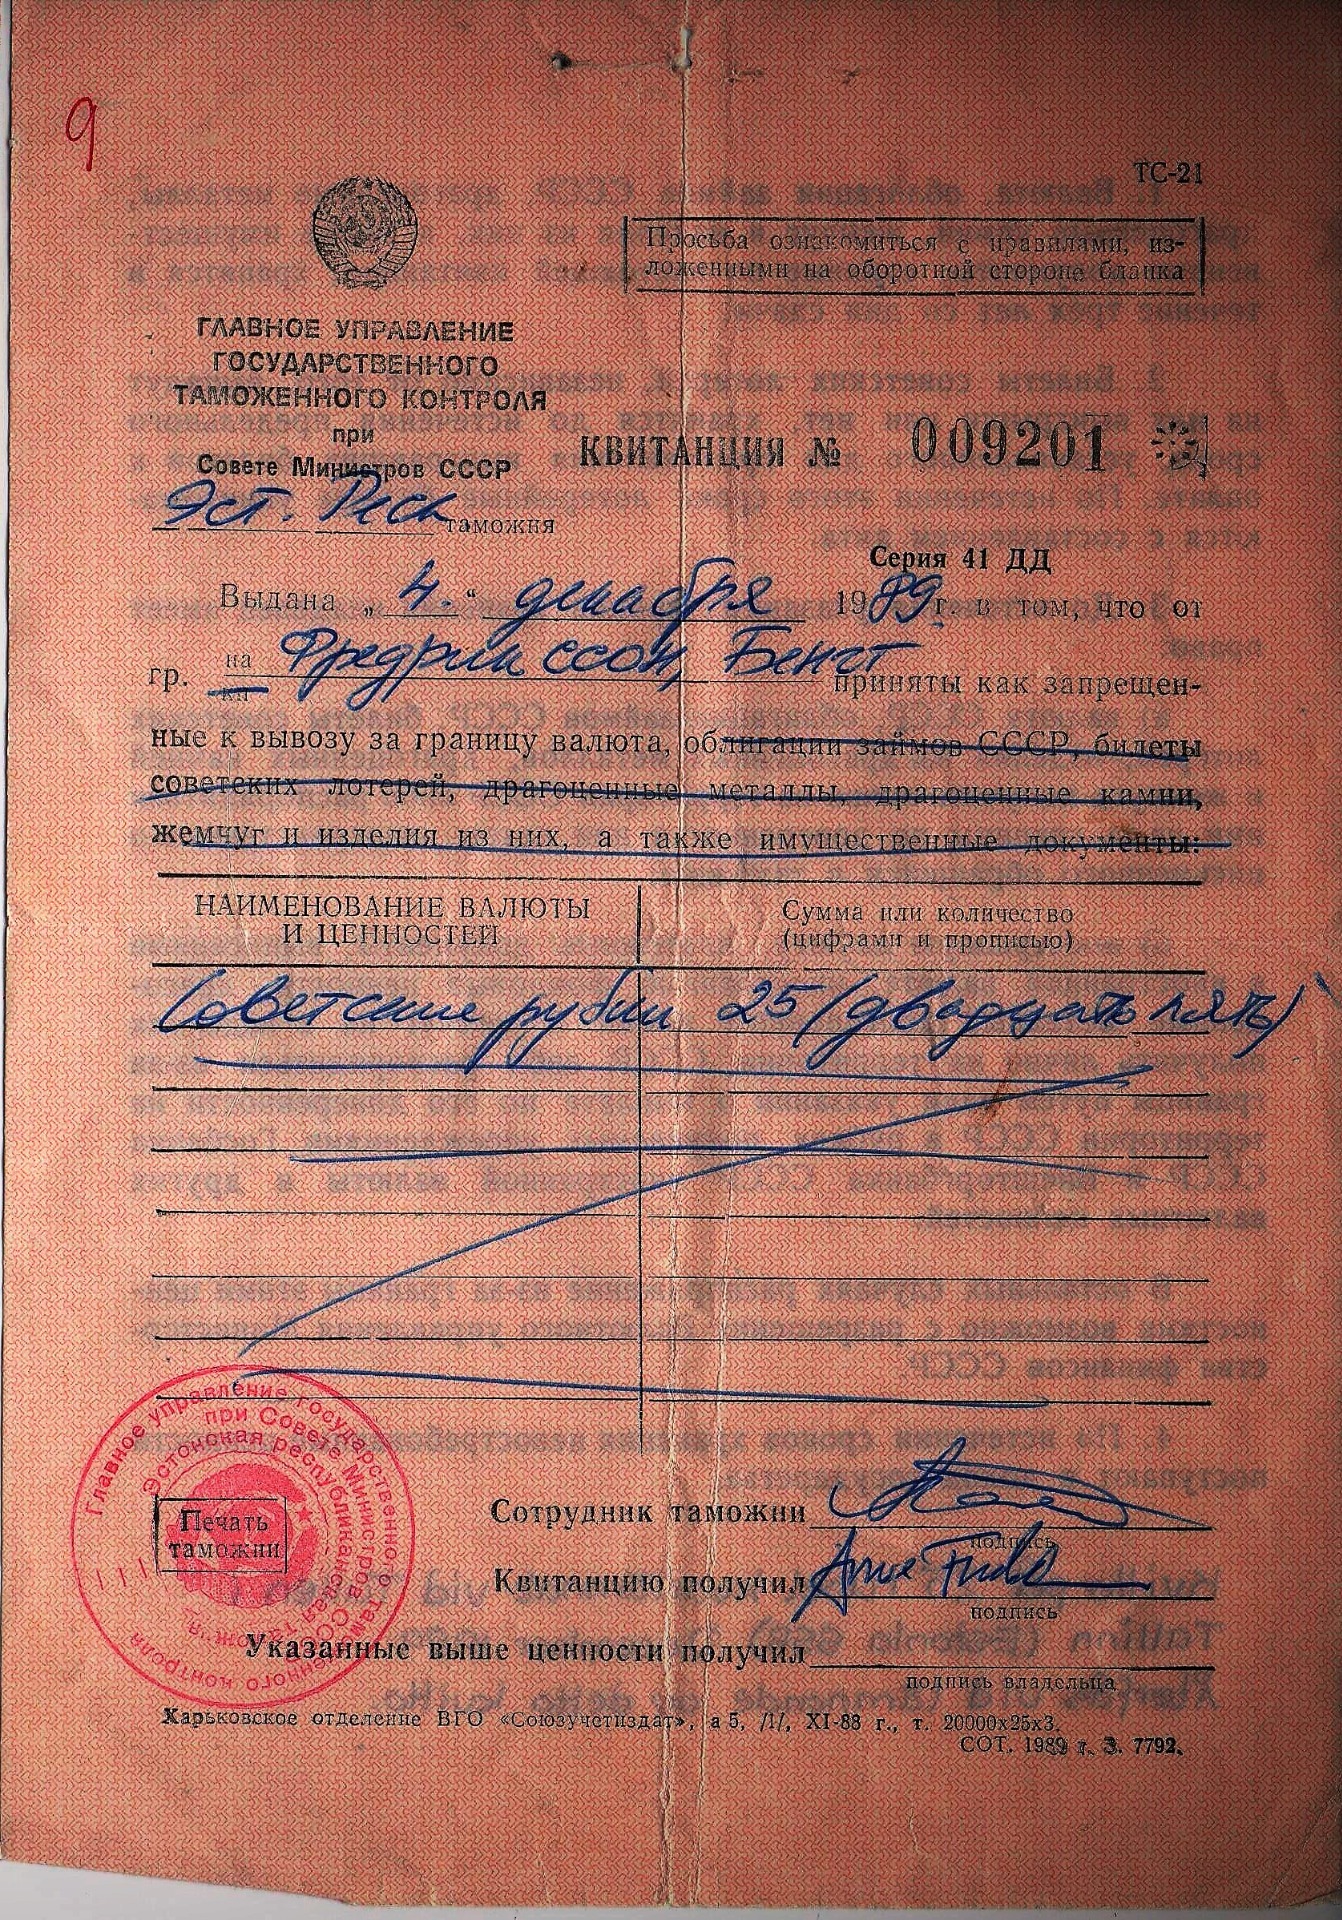 9
ТС-21
Просьба ознакомиться с правилами, из-
ложенными на оборотной стороне бланка
ГЛАВНОЕ УПРАВЛЕНИЕ
ГОСУДАРСТВЕННОГО
ТАМОЖЕННОГО КОНТРОЛЯ
при
Совете Министров СССР
КВИТАНЦИЯ № 009201
Эст. Респ таможня
Серия 41 ДД
Выдана „ 4. “ декабря 1989 г. в том, что от
гр. на Фредрикссон, Бенгт
ки
приняты как запрещен-
ные к вывозу за границу валюта, облигации займов СССР, билеты
советских лотерей, драгоценные металлы, драгоценные камни,
жемчуг и изделия из них, а также имущественные документы:
НАИМЕНОВАНИЕ ВАЛЮТЫ
И ЦЕННОСТЕЙ
Сумма или количество
(цифрами и прописью)
Советские рубли 25 (двадцать пять)
Главное управление государственного таможенного контроля
при Совете Министров СССР
Эстонская республиканская таможня
Печать
таможни
Сотрудник таможни
подпись
Квитанцию получил
подпись
Указанные выше ценности получил
подпись владельца
Харьковское отделение ВГО «Союзучетиздат», а 5, /1/, XI-88 г., т. 20000х25х3.
СОТ. 1989 г. З. 7792.